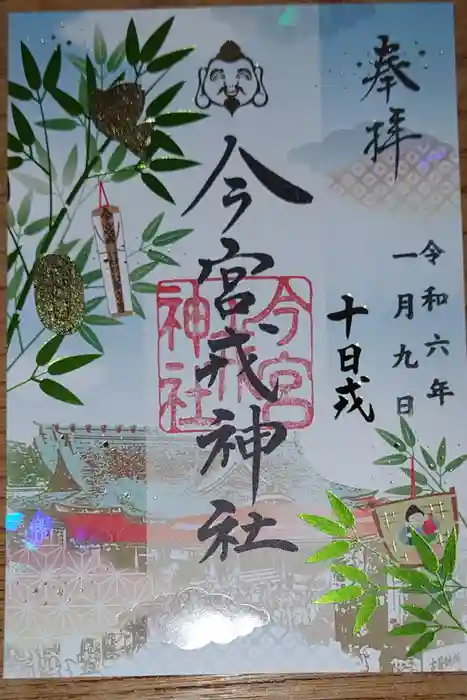 奉拝
令和六年
一月九日
十日戎
今宮戎神社
今宮戎神社